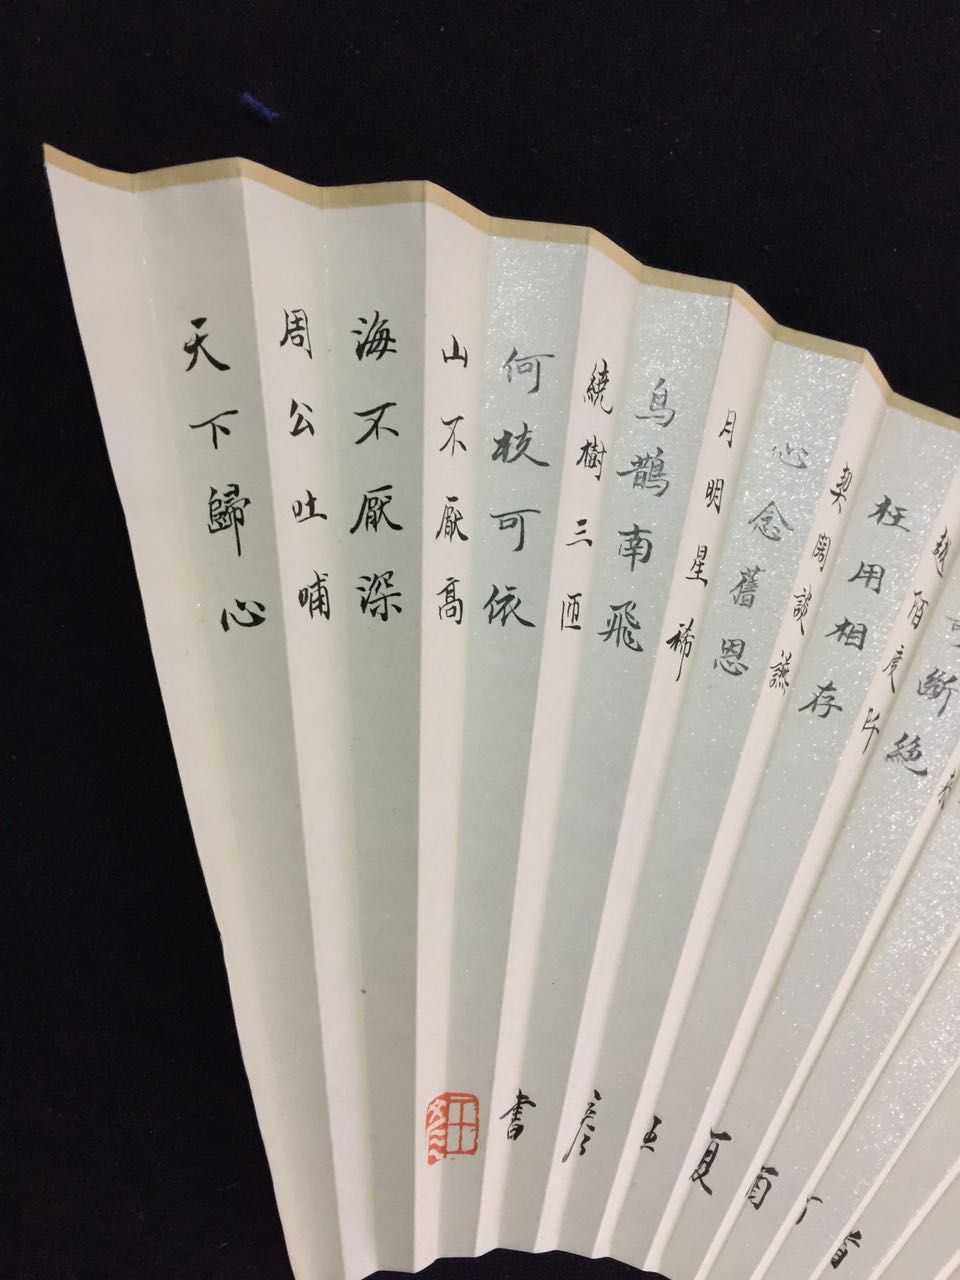 斷絕
越陌度阡
枉用相存
契闊談讌
心念舊恩
月明星稀
烏鵲南飛
繞樹三匝
何枝可依
山不厭高
海不厭深
周公吐哺
天下歸心
首丁酉夏王彥書